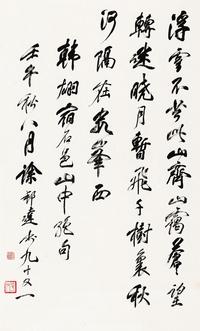 浮雲不共此山齊山靄蒼々望
轉迷曉月暫飛千樹裏秋
河隔在數峯西
韓翃宿石邑山中絕句
壬午秋八月徐邦達書九十又一